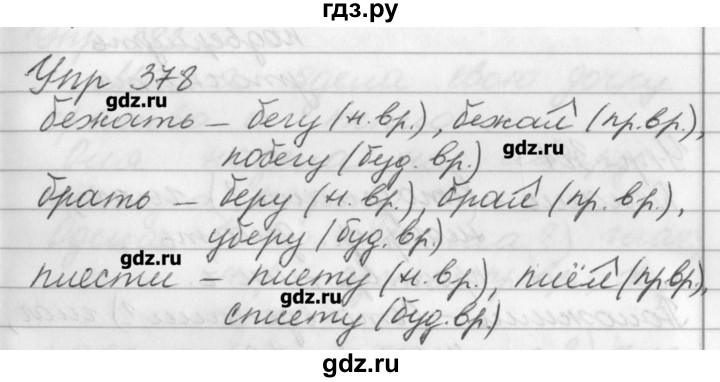 гдз.ру
Упр 378
gdz.ru
бежать – бегу (н.вр.), бежал (пр.вр.),
побегу (буд. вр.)
gdz.ru
брать – беру (н. вр.), брал (пр. вр.),
уберу (буд. вр.)
gdz.ru
плести – плету (н. вр.), плёл (пр вр.),
gdz.ru
сплету (буд. вр.)
gdz.ru